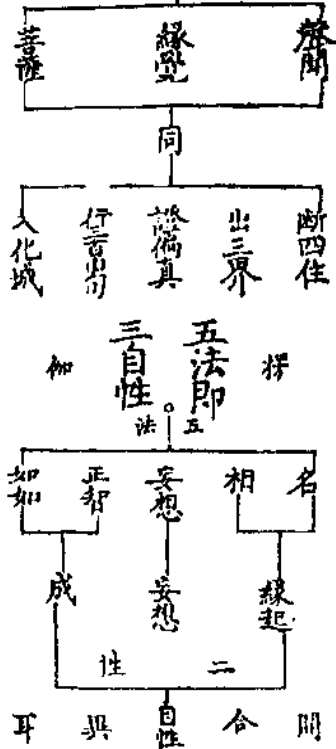 聲聞
緣覺
菩薩
同
断四住
出三界
證偏真
行三百由旬
入化城
楞
五法即
三自性
伽
五法
名
相
妄想
正智
如如
緣起
妄想
成
二性
自性
開合異耳